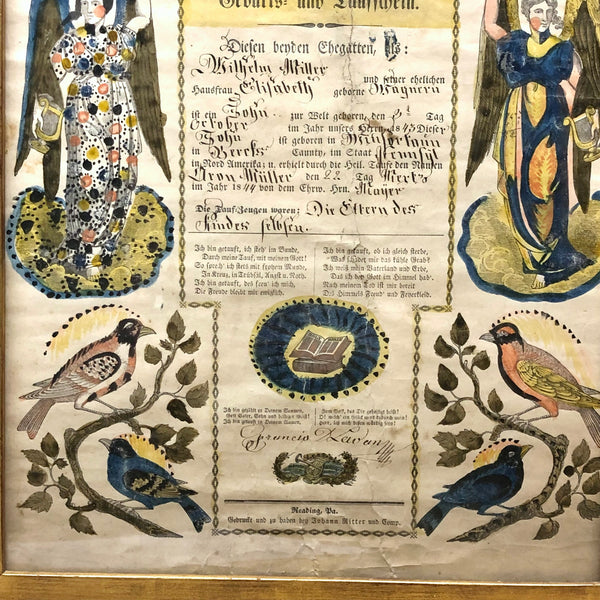 Geburts- und Taufschein.
Diesen beyden Ehegatten, als:
Wilhelm Miller und seiner ehelichen
Hausfrau Elisabeth geborne Wagnern
ist ein Sohn zur Welt geboren, den 3t Tag
October im Jahr unsers Herrn, 1843 Dieser
Sohn ist geboren in
in Bercks Caunty, im Staat Pennsyl
in Nord Amerika; u. erhielt durch die Heil. Taufe den Namen
Aron Müller den 22 Tag Mertz
im Jahr 1844 von dem Ehrw. Hrn. Mayer
Die Taufzeugen waren: Die Eltern des
Kindes selbsen.
Ich bin getauft, ich steh' im Bunde,
Durch meine Tauf, mit meinem Gott!
So sprech' ich stets mit frohem Munde,
In Kreuz, in Trübsal, Angst u. Noth.
Ich bin getauft, deß freu' ich mich,
Die Freude bleibt mir ewiglich.
Ich bin getauft, ob ich gleich sterbe,
Was schadet mir das kühle Grab?
Ich weiß mein Vaterland und Erbe,
Das ich bey Gott im Himmel hab'.
Nach meinem Tod ist mir bereit
Des Himmels Freud' und Feyerkleid.
Francis Levan
Reading, Pa.
Gedruckt und zu haben bey Johann Ritter und Comp.